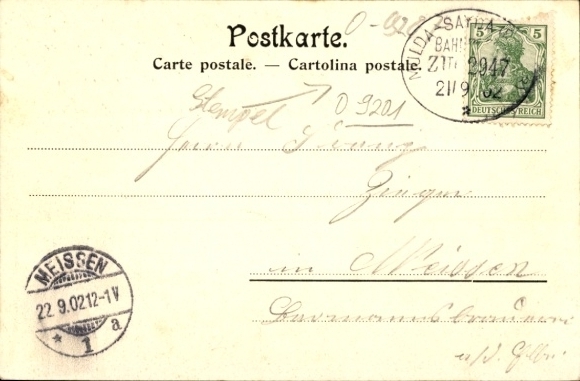 Postkarte.
Carte postale. — Cartolina postale.
MULDA-SAYDA
BAHN
ZUG 2947
21/9 02
5 5
DEUTSCHES REICH
Stempel
0 9201
Herrn
in Meissen
MEISSEN
22.9.02 12-1V
* 1 a